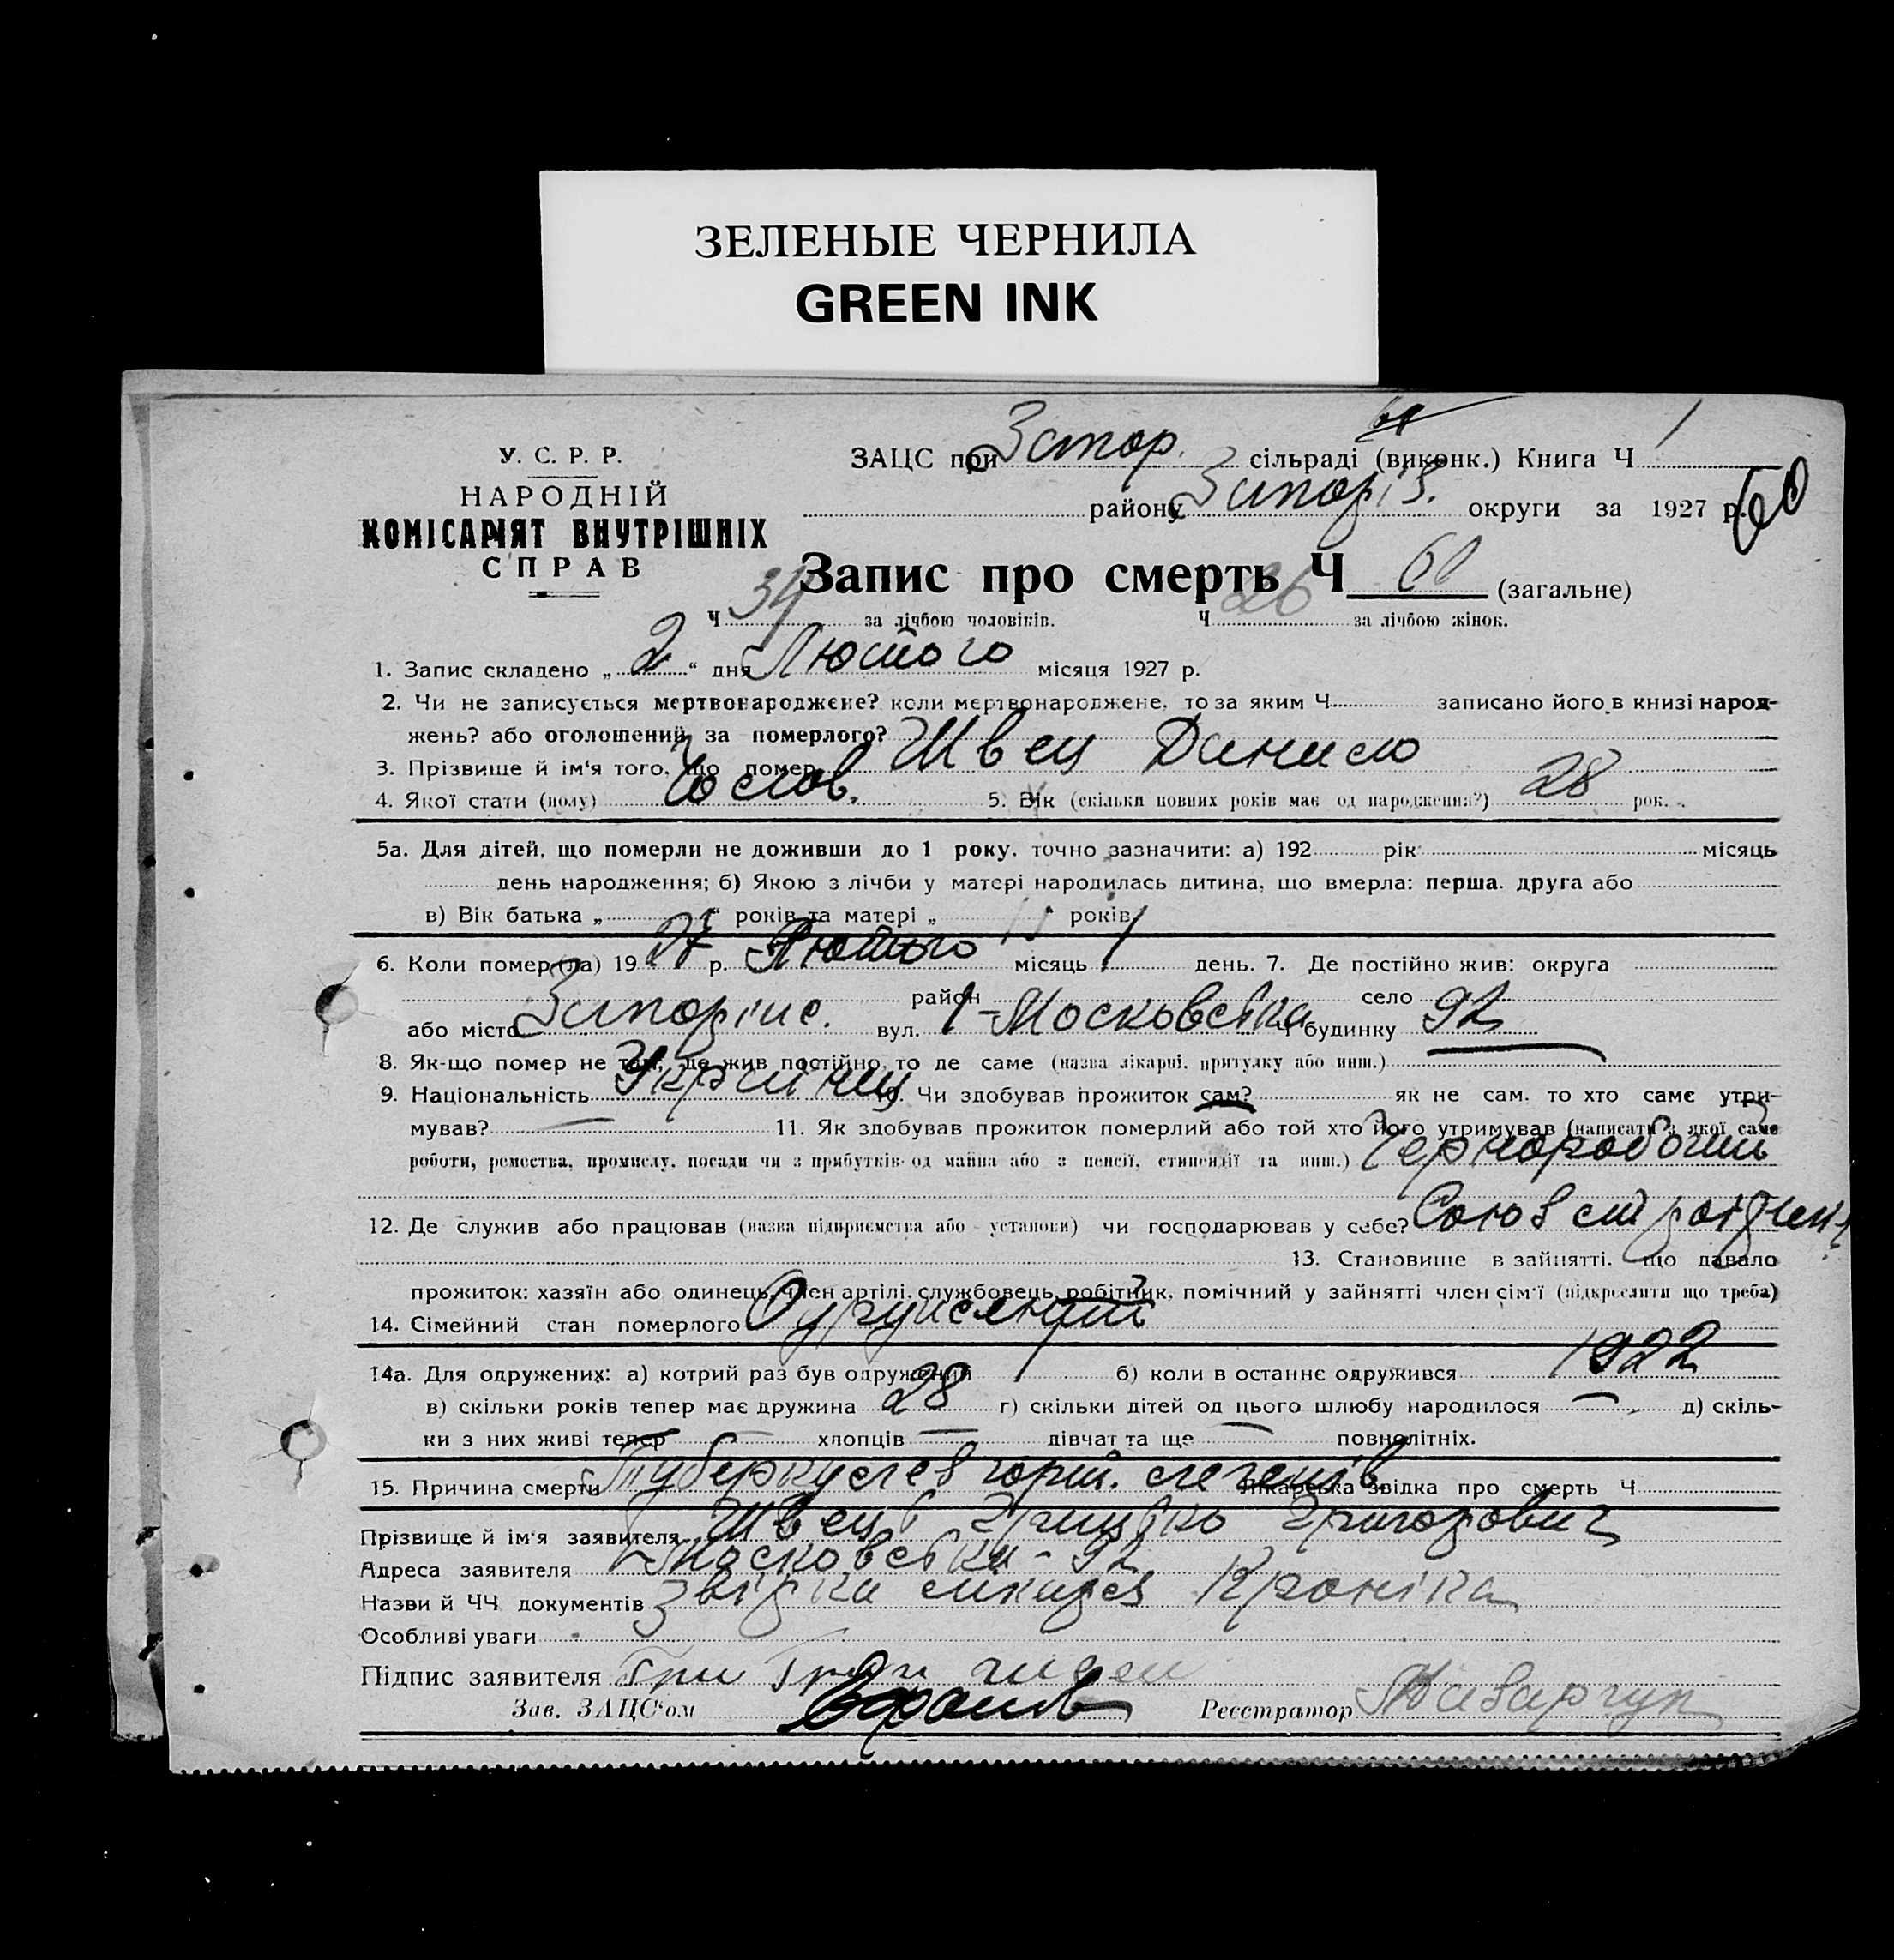 ЗЕЛЕНЫЕ ЧЕРНИЛА
GREEN INK
У. С. Р. Р.
НАРОДНІЙ
КОМІСАРІЯТ ВНУТРІШНІХ
СПРАВ
ЗАЦС при Запор. сільраді (виконк.) Книга Ч 1
району Запоріз. округи за 1927 р. 60
Запис про смерть Ч 60 (загальне)
Ч 34 за лічбою чоловіків. Ч 26 за лічбою жінок.
1. Запис складено „ 2 “ дня Лютого місяця 1927 р.
2. Чи не записується мертвонароджене? коли мертвонароджене, то за яким Ч записано його в книзі народ-
жень? або оголошений за померлого?
3. Прізвище й ім‘я того, що помер Швец Данило
4. Якої стати (полу) Чолов. 5. Вік (скільки повних років має од народження?) 28 рок.
5а. Для дітей, що померли не доживши до 1 року, точно зазначити: а) 192 рік місяць
день народження; б) Якою з лічби у матері народилась дитина, що вмерла: перша. друга або
в) Вік батька „ “ років та матері „ “ років
6. Коли помер(ла) 19 27 р. Лютого місяць 1 день. 7. Де постійно жив: округа
район село
або місто Запоріжс. вул. 1-Московська Ч будинку 92
8. Як-що помер не там, де жив постійно, то де саме (назва лікарні. притулку або инш.)
9. Національність Українец 10. Чи здобував прожиток сам? як не сам, то хто саме утри-
мував? 11. Як здобував прожиток померлий або той хто його утримував (написати з якої саме
роботи, ремества, промислу, посади чи з прибутків од майна або з пенсії, стипендії та инш.) Чернорабочий
12. Де служив або працював (назва підприємства або установи) чи господарював у себе? Союз
13. Становище в зайнятті. що давало
прожиток: хазяїн або одинець, член артілі, службовець, робітник, помічний у зайнятті член сім‘ї (підкреслити що треба)
14. Сімейний стан померлого Одружений
14а. Для одружених: а) котрий раз був одружений 1 б) коли в останнє одружився 1922
в) скільки років тепер має дружина 28 г) скільки дітей од цього шлюбу народилося — д) скіль-
ки з них живі тепер — хлопців — дівчат та ще — повнолітніх.
15. Причина смерти Туберкулез легенів Лікарська звідка про смерть Ч
Прізвище й ім‘я заявителя Швець Грицько Григорович
Адреса заявителя Московська - 92
Назви й ЧЧ документів звідка лікаря Кроніка
Особливі уваги
Підпис заявителя
Зав. ЗАЦС‘ом Реєстратор